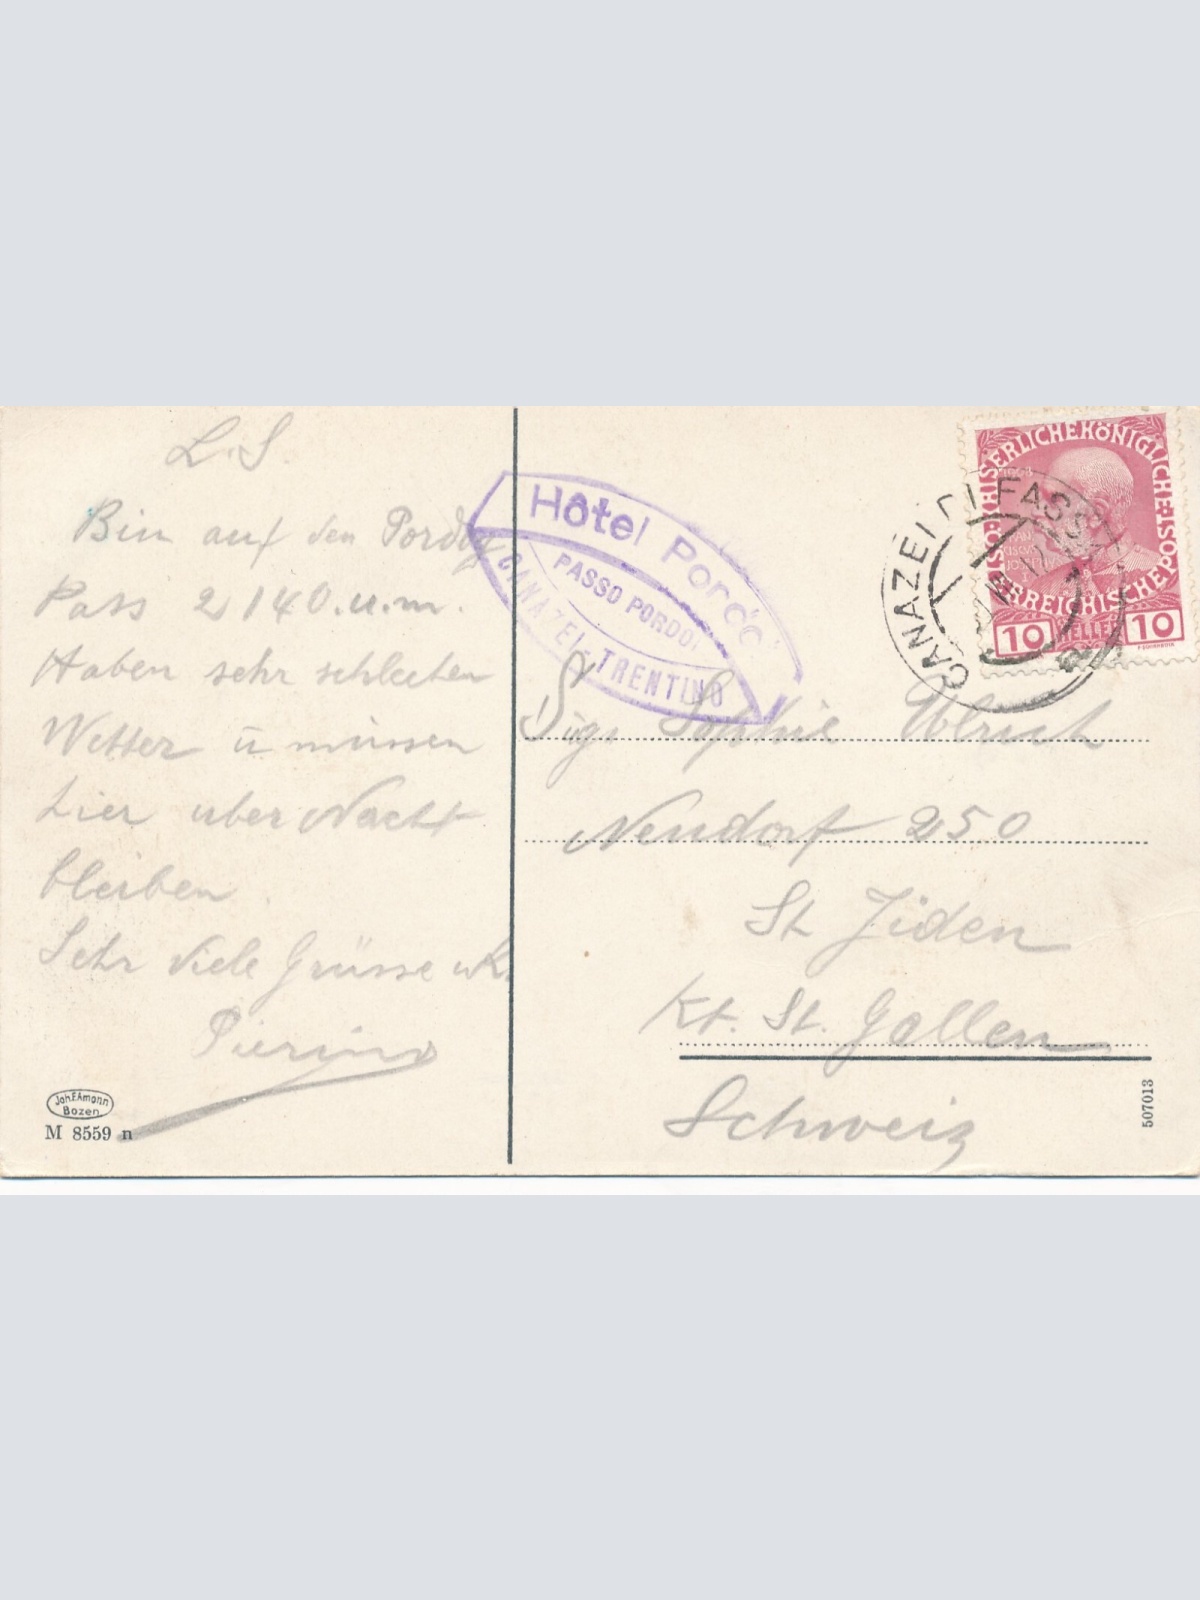 L. S.
Bin auf den Pordoy
Pass 2140.ü.m.
Haben sehr schlechten
Wetter ü müssen
hier uber Nacht
bleiben
Sehr viele Grüsse
Pierino
Joh.F.Amonn
Bozen
M 8559 n
Hôtel Pordoi
PASSO PORDOI
CANAZEI - TRENTINO
CANAZEI DI FASSA
KAISERLICHE KÖNIGLICHE ÖSTERREICHISCHE POST
1908
10 HELLER 10
Sig. Sophie Ulrich
Neudorf 250
St. Fiden
Kt. St. Gallen
Schweiz
507013